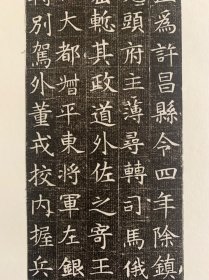 為許昌縣令四年除鎮
頭府主薄尋轉司馬俄
慙其政道外佐之寄王
大都督平東將軍左銀
別駕外董戎校內握兵